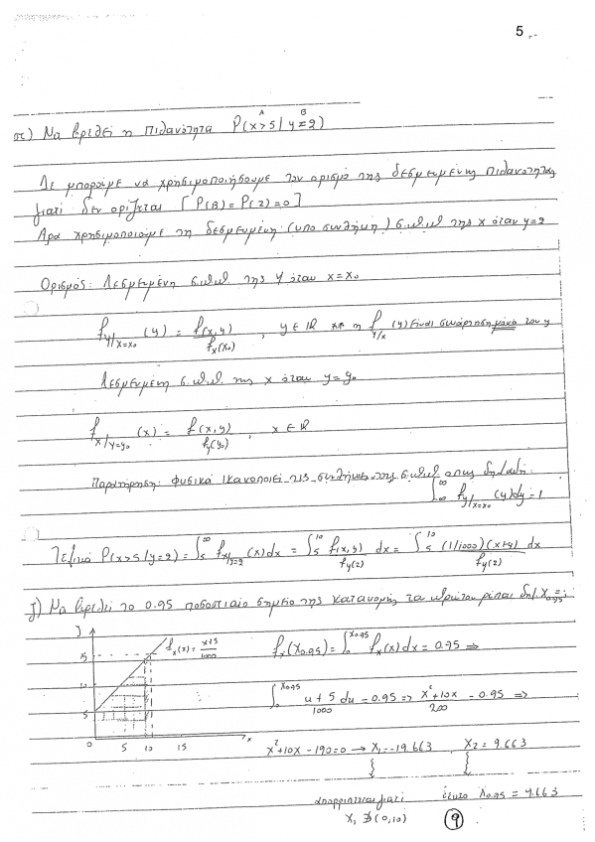 5
στ) Να βρεθεί η πιθανότητα P(x>5 / y=2)
A B
Δε μπορούμε να χρησιμοποιήσουμε τον ορισμό της δεσμευμένης πιθανότητας
γιατί δεν ορίζεται [P(B)=P(2)=0]
Άρα χρησιμοποιούμε τη δεσμευμένη (υπό συνθήκη) σ.π.π. της x όταν y=2
Ορισμός: Δεσμευμένη σ.π.π. της y όταν x=x₀
f_{y/x=x₀}(y) = f(x,y)/f_x(x₀) , y ∈ ℝ ** η f_{y/x}(y) είναι συνάρτηση μόνο του y
Δεσμευμένη σ.π.π. της x όταν y=y₀
f_{x/y=y₀}(x) = f(x,y)/f_y(y₀) , x ∈ ℝ
Παρατήρηση: Φυσικά ικανοποιεί τις συνθήκες της σ.π.π. όπως δηλαδή
∫^∞ f_{y/x=x₀}(y)dy=1
Τελικά P(x>5/y=2) = ∫_5^∞ f_{x/y=2}(x)dx = ∫_5^10 f(x,y)/f_y(2) dx = ∫_5^10 (1/1000)(x+y)/f_y(2) dx
ζ) Να βρεθεί το 0.95 ποσοστιαίο σημείο της κατανομής δηλ. X_{0.95}=;
f_x(x) = x+5/1000
15
10
5
0 5 10 15 x
f_x(X_{0.95}) = ∫_0^{x_{0.95}} f_x(x)dx = 0.95 ⇒
∫_0^{x_{0.95}} u+5/1000 du = 0.95 ⇒ x²+10x/200 = 0.95 ⇒
x²+10x-190=0 → x₁=-19.663 , x₂=9.663
απορρίπτεται γιατί
x₁ ∌ (0,10)
έστω X_{0.95} = 9.663
9